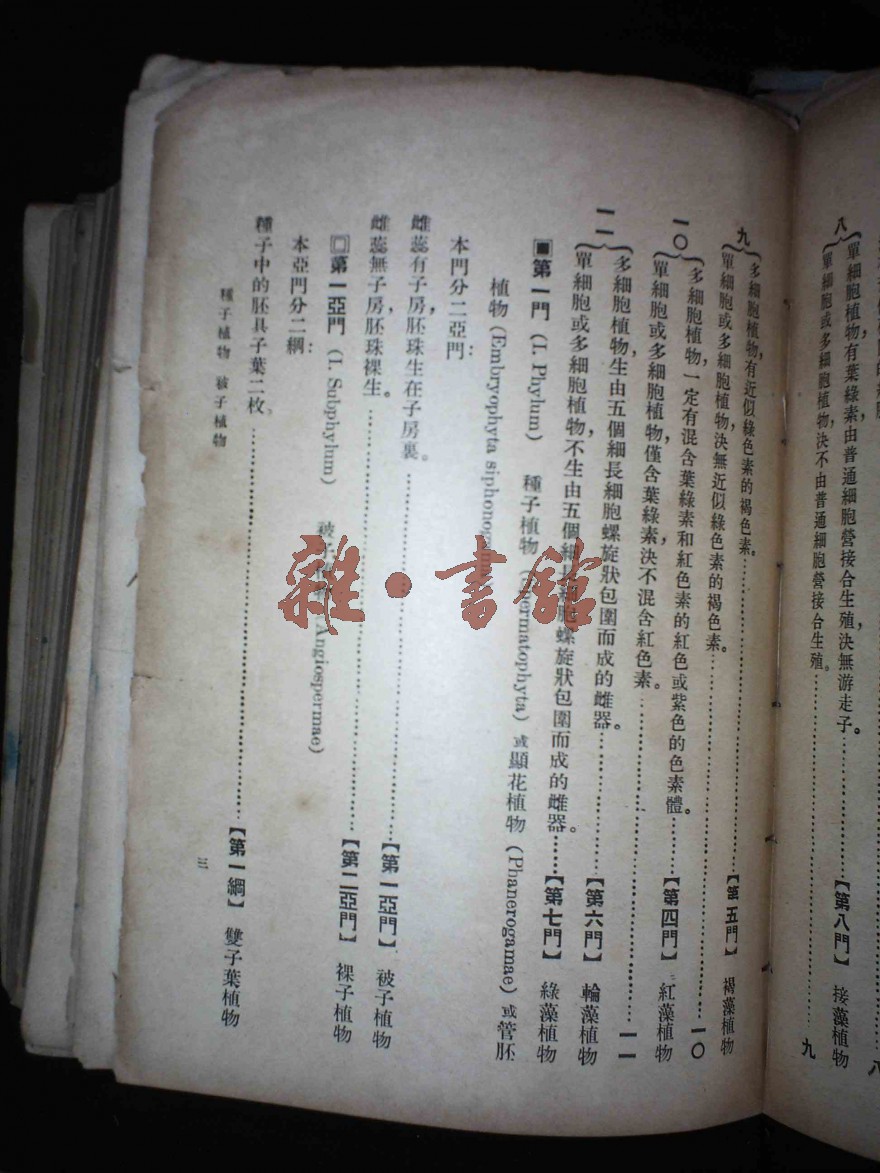 八
單細胞植物有葉綠素由普通細胞營接合生殖,決無游走子。……【第八門】 接藻植物
單細胞或多細胞植物,決不由普通細胞營接合生殖。……九
九
多細胞植物,有近似綠色素的褐色素。……【第五門】 褐藻植物
單細胞或多細胞植物,決無近似綠色素的褐色素。……一〇
一〇
多細胞植物,一定有混含葉綠素和紅色素的紅色或紫色的色素體。……【第四門】 紅藻植物
單細胞或多細胞植物,僅含葉綠素,決不混含紅色素。……一一
一一
多細胞植物,生由五個細長細胞螺旋狀包圍而成的雌器。……【第六門】 輪藻植物
單細胞或多細胞植物,不生由五個細長細胞螺旋狀包圍而成的雌器。……【第七門】 綠藻植物
第一門 (I. Phylum) 種子植物 (Spermatophyta) 或顯花植物 (Phanerogamae) 或管胚
植物 (Embryophyta siphonogama)
本門分二亞門:
雌蕊有子房,胚珠生在子房裏。……【第一亞門】 被子植物
雌蕊無子房,胚珠裸生。……【第二亞門】 裸子植物
第一亞門 (I. Subphylum) 被子植物 (Angiospermae)
本亞門分二綱:
種子中的胚具子葉二枚。……【第一綱】 雙子葉植物
種子植物 被子植物
三
雜·書館